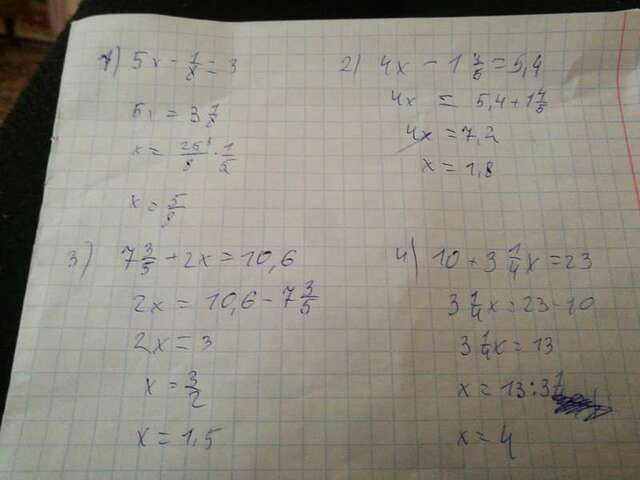 1) 5x - 1/8 = 3
5x = 3 1/8
x = 25/8 · 1/5
x = 5/8
2) 4x - 1 4/5 = 5,4
4x = 5,4 + 1 4/5
4x = 7,2
x = 1,8
3) 7 3/5 + 2x = 10,6
2x = 10,6 - 7 3/5
2x = 3
x = 3/2
x = 1,5
4) 10 + 3 1/4 x = 23
3 1/4 x = 23 - 10
3 1/4 x = 13
x = 13 : 3 1/4
x = 4